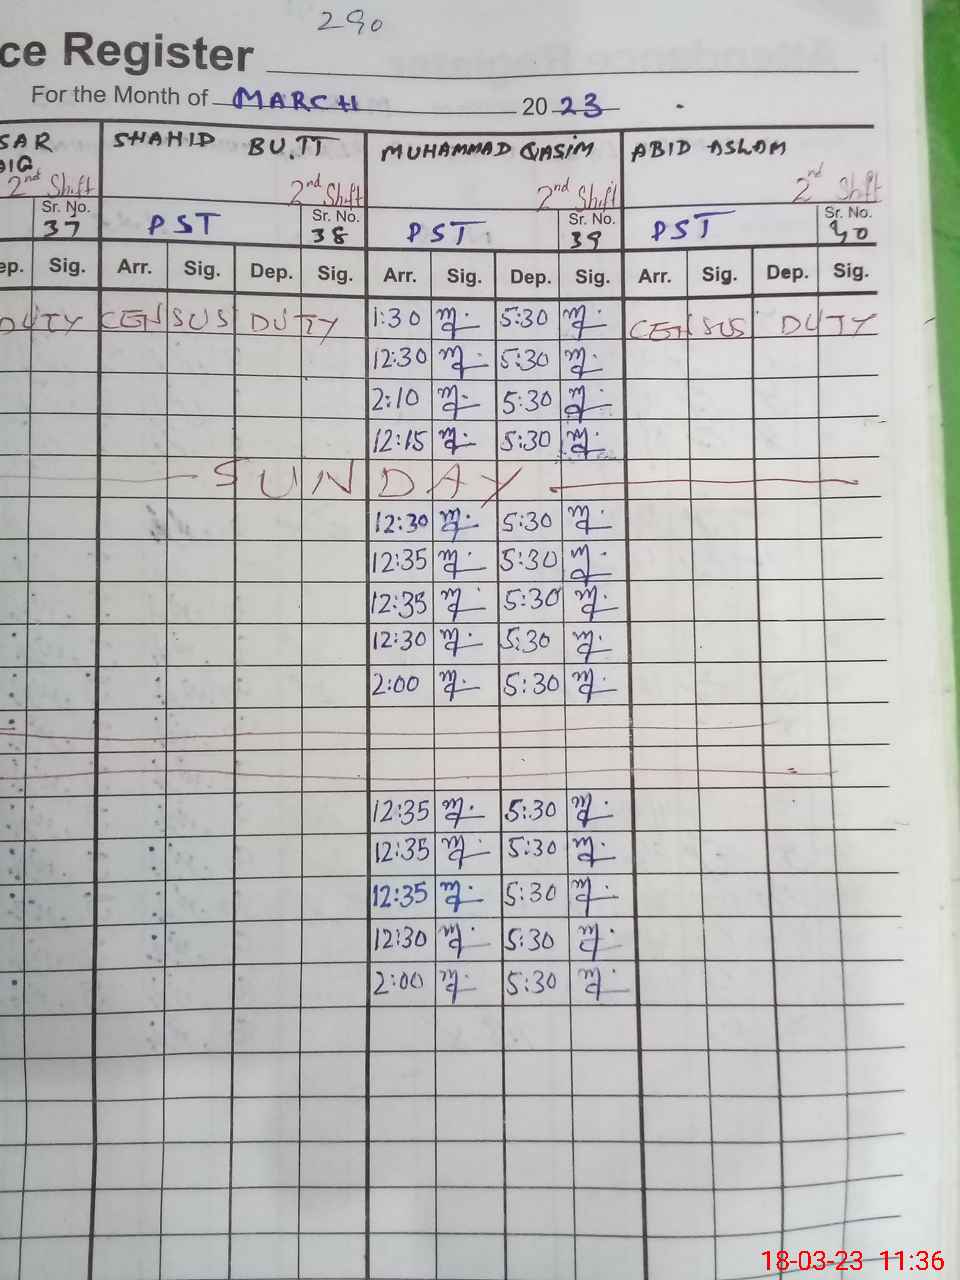 290
ce Register
For the Month of MARCH 2023
SAR SHAHID BUTT MUHAMMAD QASIM ABID ASLAM
AIG
2nd Shift 2nd Shift 2nd Shift 2nd Shift
Sr. No. PST Sr. No. PST Sr. No. PST Sr. No.
37 38 39 40
ep. Sig. Arr. Sig. Dep. Sig. Arr. Sig. Dep. Sig. Arr. Sig. Dep. Sig.
DUTY CENSUS DUTY 1:30 5:30 CENSUS DUTY
12:30 5:30
2:10 5:30
12:15 5:30
SUNDAY
12:30 5:30
12:35 5:30
12:35 5:30
12:30 5:30
2:00 5:30
12:35 5:30
12:35 5:30
12:35 5:30
12:30 5:30
2:00 5:30
18-03-23 11:36